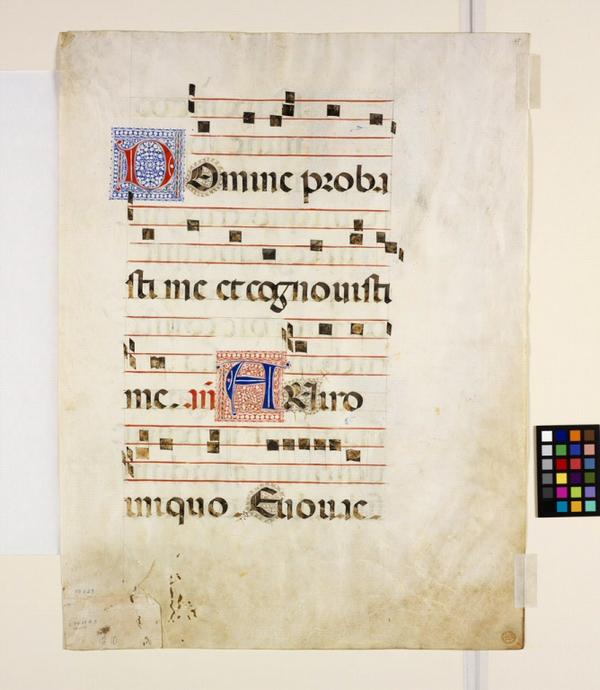 DOmine proba
sti me et cognouisti
me. añ A Uiro
iniquo. Euouae.